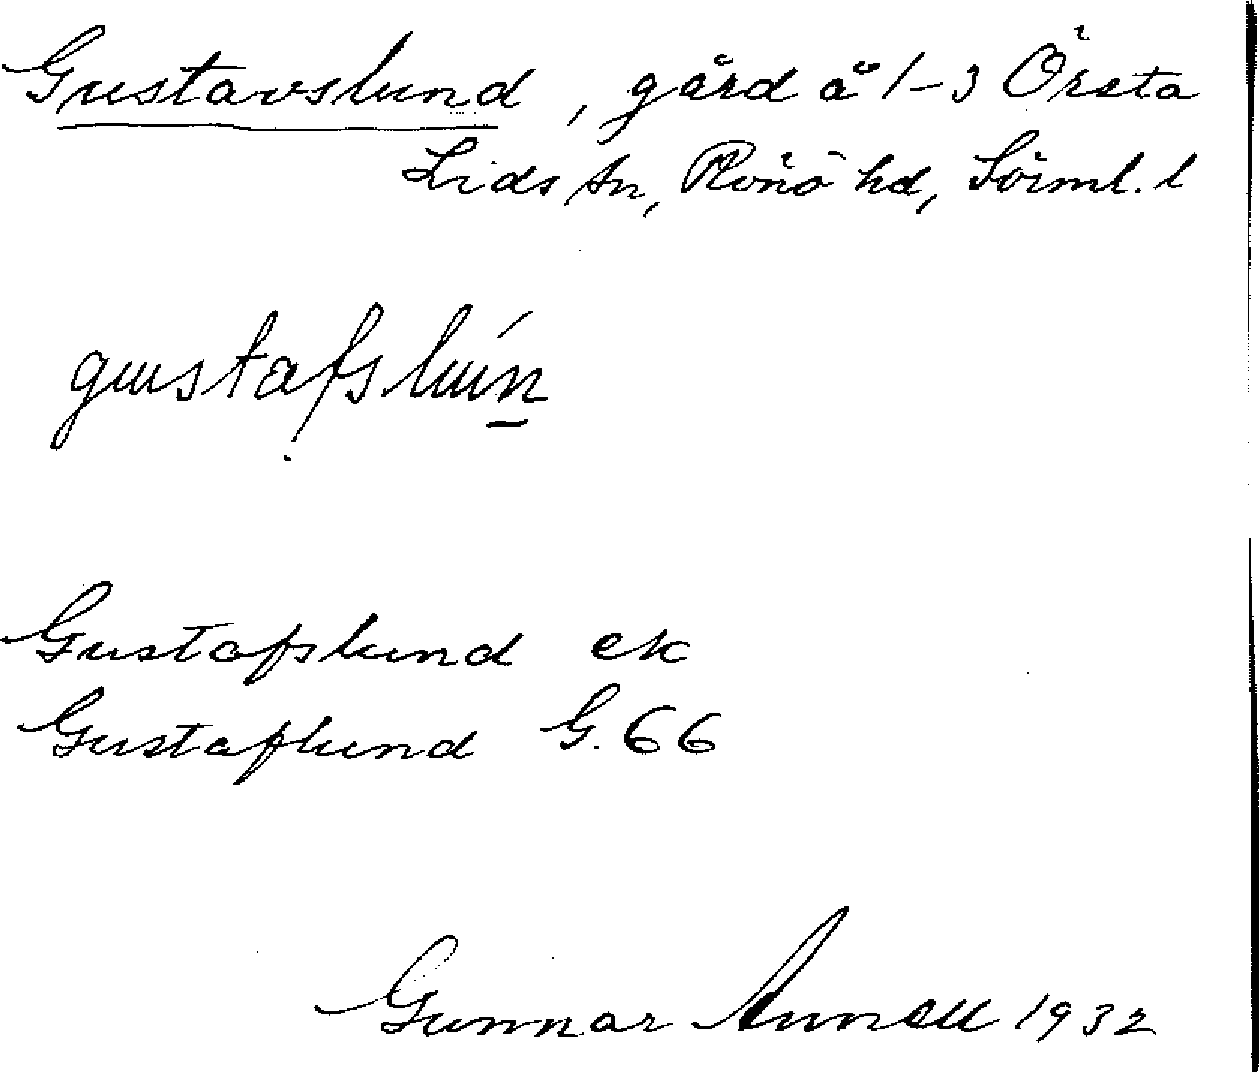 Gustavslund, gård å 1-3 Örsta
Lids sn, Rönö hd, Sörml. l
gustafslún
Gustafslund ek
Gustaflund G. 66
Gunnar Annell 1932